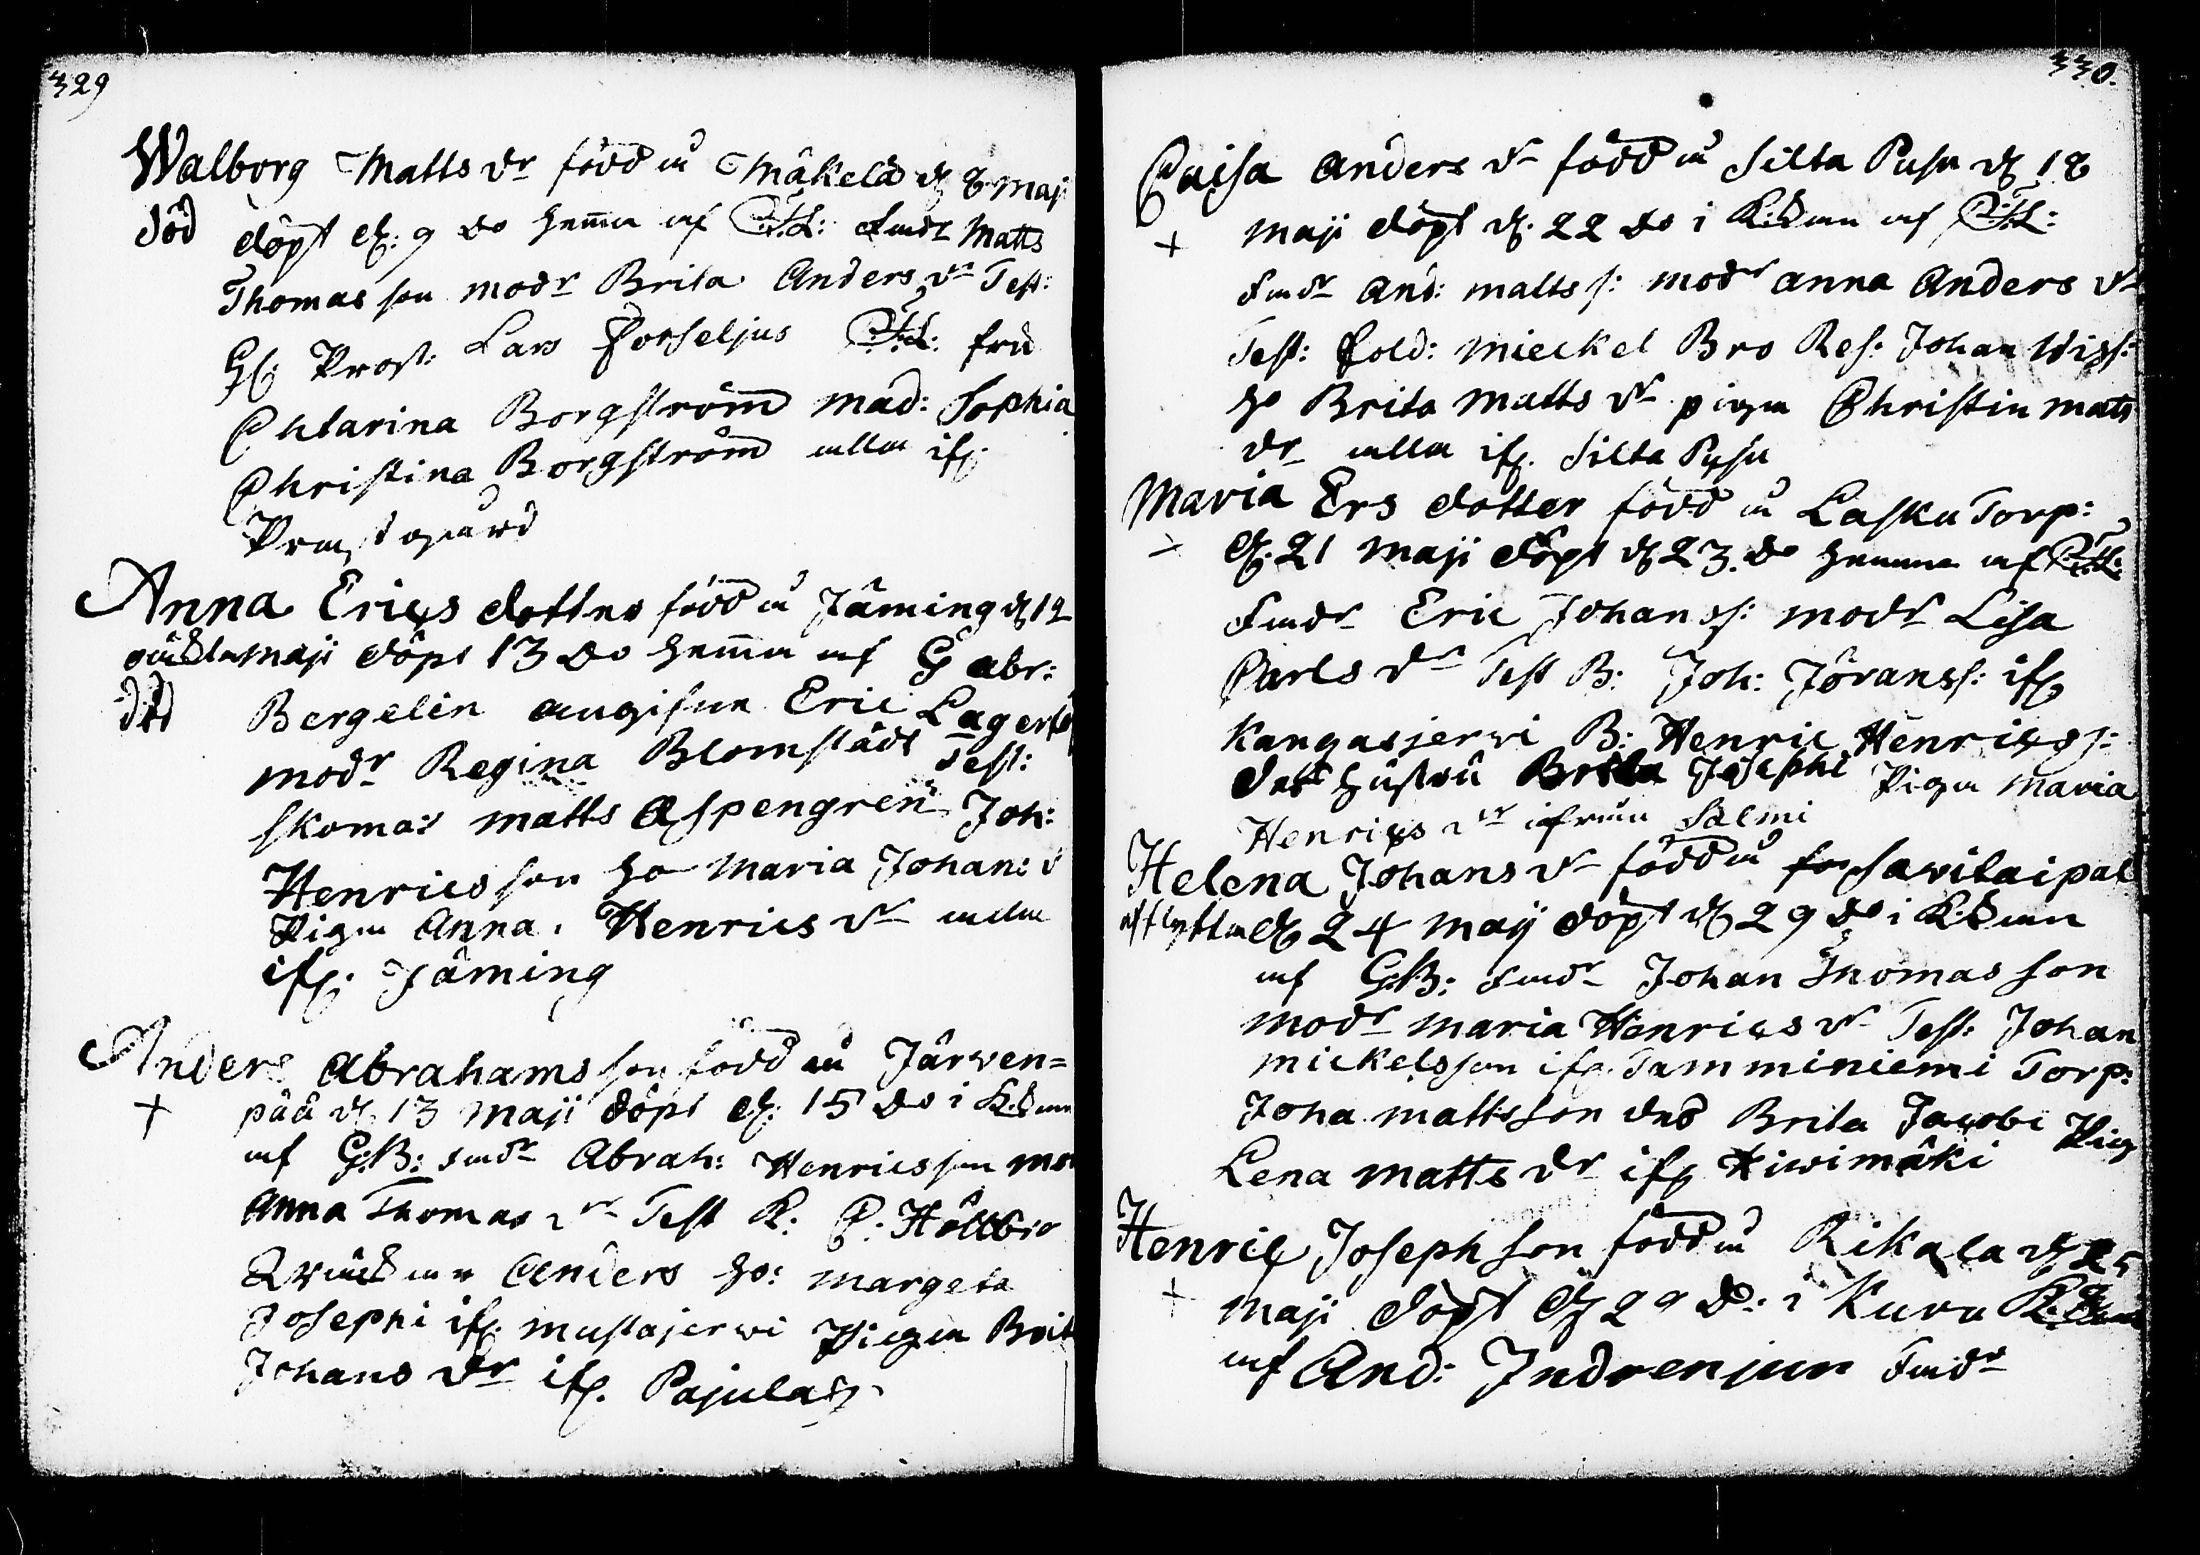 329
Walborg Matts dr född in Mäkelä d 8 maj
död döpt d: 9 do hema af Fadr Matts
Thomas son modr Brita Anders dr Test:
H: Prost: Lars Forseljus fru
Chtarina Borgström mad: Sophia
Christina Borgström alla if:
Prästgård
Anna Erics dotter född in Jäming d 12
maji döpt 13 do hema af G abr:
död Bergelin angifven Eric Lager
modr Regina Blomstädt Test:
skomar matts Aspengren Joh:
Henrics son ho Maria Johans d
Pigan Anna Henrics dr alla
if: Jäming
Anders Abrahams son född in Järwen=
+ pää d. 13 maji döpt d: 15 do i
af G:B: Fadr Abrah: Henrics son mo
Anna Thomas dr Test K:
Anders ho: margeta
Josephi if. mustajerwi Pigan Brit
Johans dr if. Pajula
330.
Caisa Anders dr född in Silta Pusa d 18
+ maji döpt d. 22 do i af
Fadr And: matts s: modr anna Anders dr
Test: Sold: mickel Bro Res: Johan
ho Brita Matts dr pigan Christin mats
dr alla if. Silta Pusa
Maria Ers dotter född in Lasku Torp:
+ d. 21 maji döpt d 23. do hemma af
Fadr Eric Johans s: modr Lisa
Carls dr Test B: Joh: Jörans s: if
Kangasjerwi B: Henric Henrics s:
hustru Brita Josephi Pigan Maria
Henrics dr ifrån Salmi
Helena Johans dr född in sawitaipal
afflyttad 24 maij döpt d 29 do i
af G:B: Fadr Johan Thomas son
modr maria Henrics dr Test: Johan
mickelsson if. Tamminiemi Torp:
Joha mattsson Brita Jacobi Pig
Lena matts dr if Kiwimäki
Henric Joseph son född in Rikala d 25
+ maji döpt d 29 do: i Kuru
af And: Indrenjus Fadr